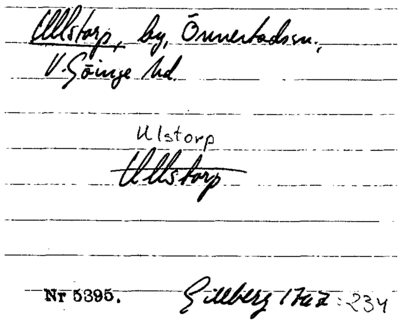 Ullstorp, by, Önnestadssn.,
V. Göinge hd.
Ulstorp
Ullstorp
Nr 5395. Gillberg 1767: 234